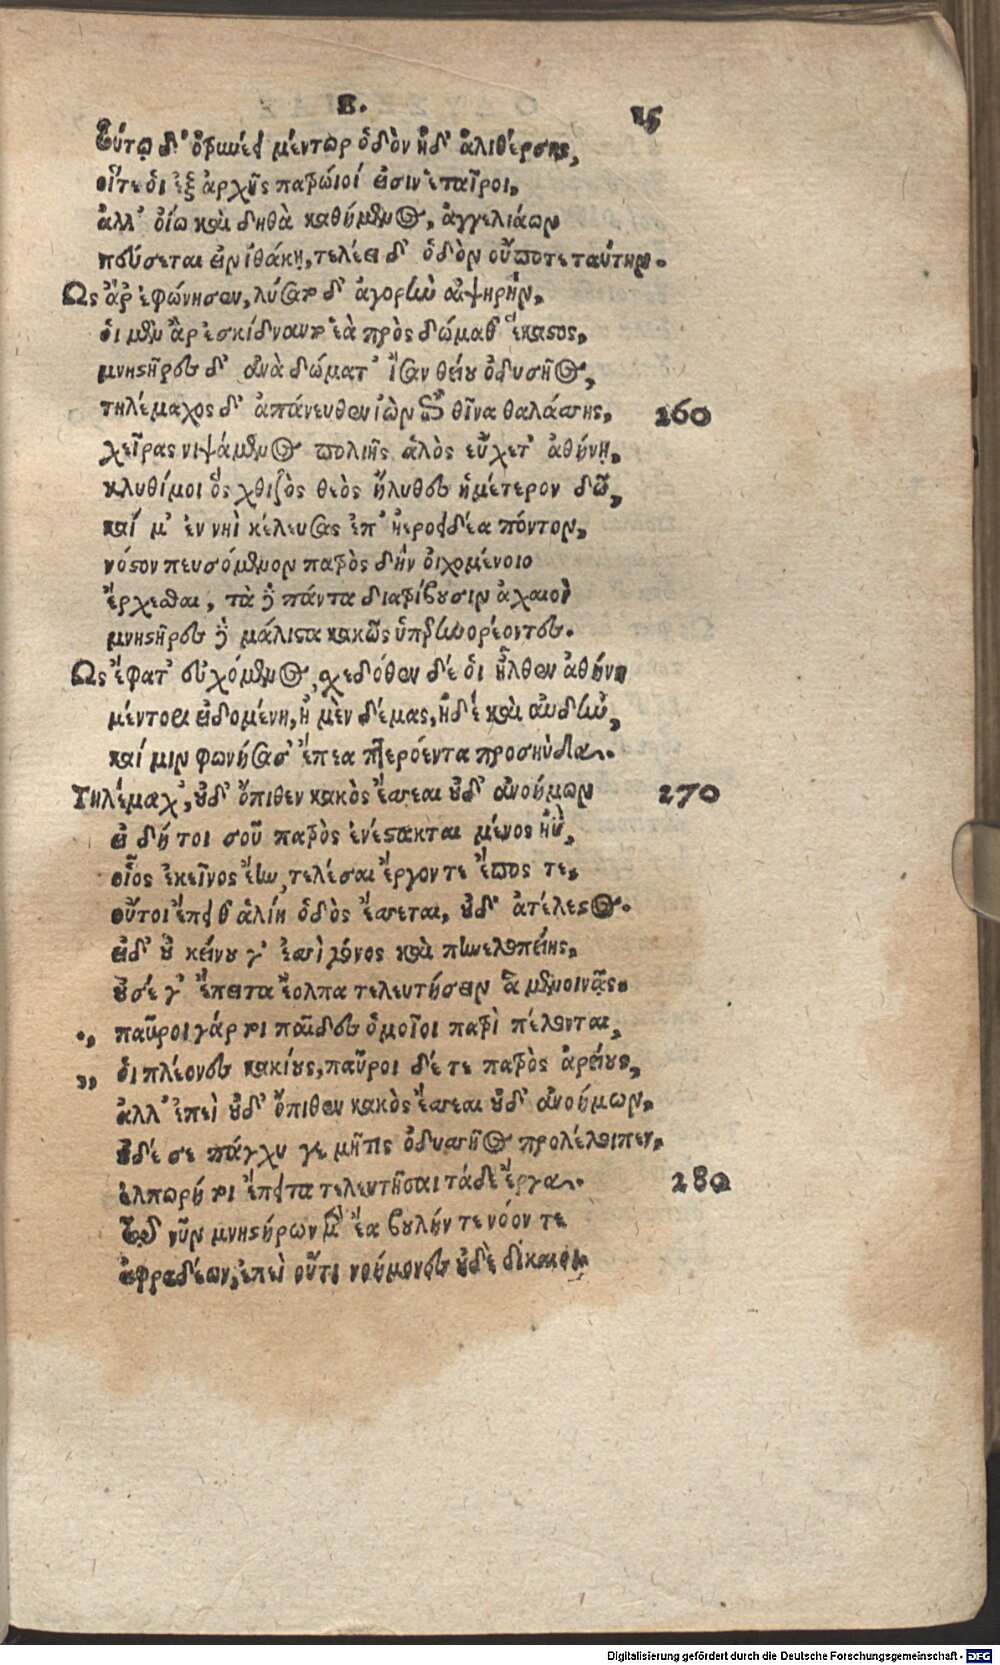 Β. 16
Τούτῳ δ' ὀτρυνέει μέντωρ ὁδὸν ἠδ' ἁλιθέρσης,
οἵτε οἱ ἐξ ἀρχῆς πατρώϊοί εἰσιν ἑταῖροι,
ἀλλ' ὀΐω καὶ δηθὰ καθήμενος, ἀγγελιάων
πεύσεται εἰν ἰθάκῃ, τελέει δ' ὁδὸν οὔποτε ταύτην.
Ὣς ἄρ' ἐφώνησεν, λῦσαν δ' ἀγορὴν αἰψηρήν,
οἱ μὲν ἄρ' ἐσκίδναντο ἑὰ πρὸς δώμαθ' ἕκαστος,
μνηστῆρες δ' ἀνὰ δώματ' ἴσαν θείου ὀδυσῆος,
τηλέμαχος δ' ἀπάνευθεν ἰὼν ἐπὶ θῖνα θαλάσσης, 260
χεῖρας νιψάμενος πολιῆς ἁλὸς εὔχετ' ἀθήνῃ,
κλυθίμοι ὃς χθιζὸς θεὸς ἤλυθες ἡμέτερον δῶ,
καί μ' ἐν νηῒ κέλευσας ἐπ' ἠεροειδέα πόντον,
νόστον πευσόμενον πατρὸς δὴν οἰχομένοιο
ἔρχεσθαι, τὰ δὲ πάντα διατρίβουσιν ἀχαιοὶ
μνηστῆρες δὲ μάλιστα κακῶς ὑπερηνορέοντες.
Ὣς ἔφατ' εὐχόμενος, σχεδόθεν δέ οἱ ἦλθεν ἀθήνη
μέντορι εἰδομένη, ἠμὲν δέμας, ἠδὲ καὶ αὐδήν,
καί μιν φωνήσασ' ἔπεα πτερόεντα προσηύδα.
Τηλέμαχ', οὐδ' ὄπιθεν κακὸς ἔσσεαι οὐδ' ἀνοήμων 270
εἰ δή τοι σοῦ πατρὸς ἐνέστακται μένος ἠΰ,
οἷος ἐκεῖνος ἔην, τελέσαι ἔργον τε ἔπος τε,
οὔτοι ἔπειθ' ἁλίη ὁδὸς ἔσσεται, οὐδ' ἀτέλεστος.
εἰ δ' οὐ κείνου γ' ἐσσὶ γόνος καὶ πηνελοπείης,
οὐ σέ γ' ἔπειτα ἔολπα τελευτήσειν ἃ μενοινᾷς.
„ παῦροι γάρ τοι παῖδες ὁμοῖοι πατρὶ πέλονται,
„ οἱ πλέονες κακίους, παῦροι δέ τε πατρὸς ἀρείους,
ἀλλ' ἐπεὶ οὐδ' ὄπιθεν κακὸς ἔσσεαι οὐδ' ἀνοήμων,
οὐδέ σε πάγχυ γε μῆτις ὀδυσσῆος προλέλοιπεν,
ἐλπωρή τοι ἔπειτα τελευτῆσαι τάδε ἔργα. 280
τῶ νῦν μνηστήρων μὲν ἔα βουλήν τε νόον τε
ἀφραδέων, ἐπεὶ οὔτι νοήμονες οὐδὲ δίκαιοι,
Digitalisierung gefördert durch die Deutsche Forschungsgemeinschaft - DFG